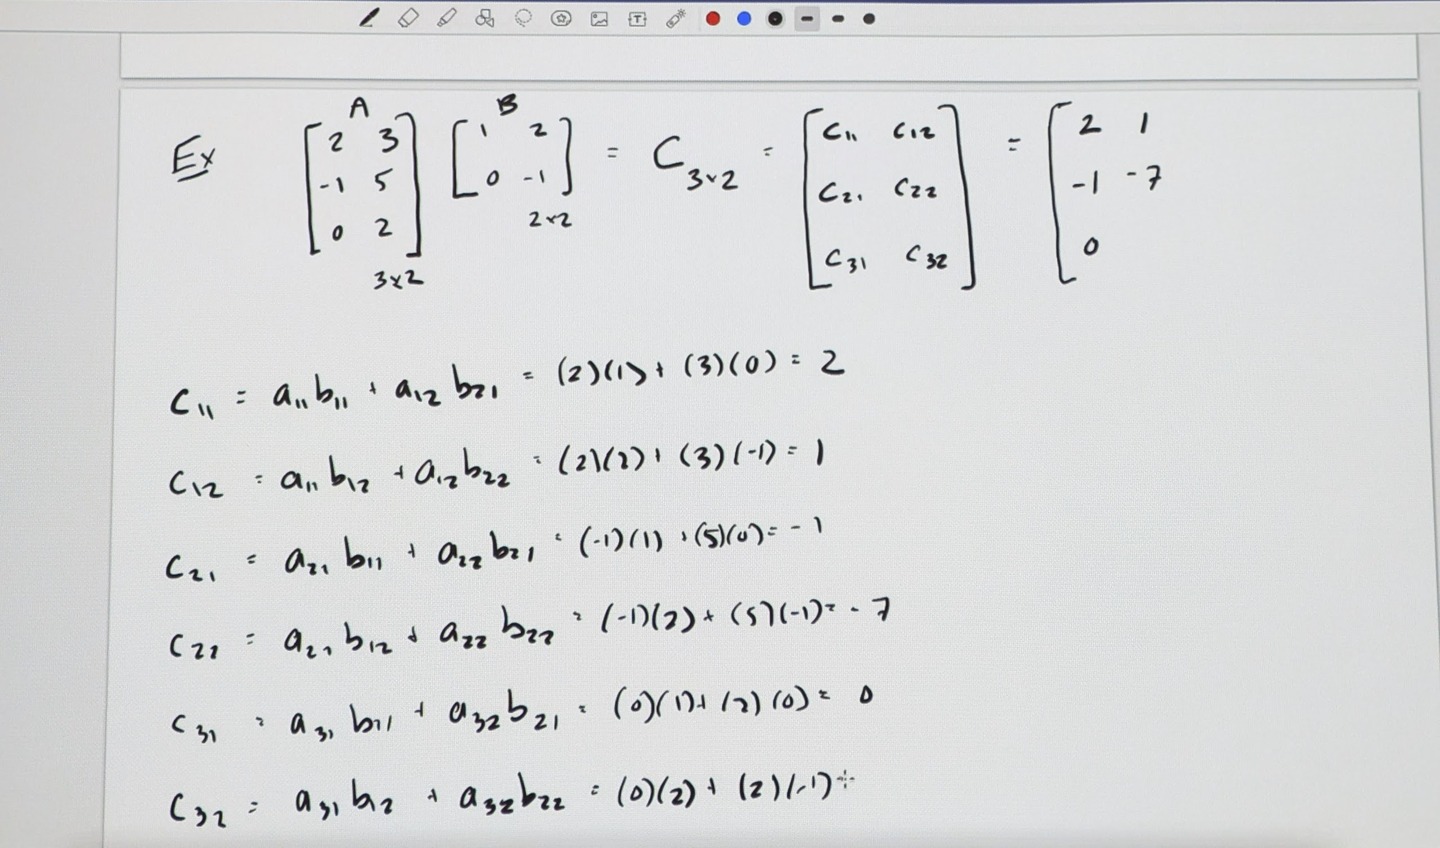 A B
Ex [2 3 -1 5 0 2] [1 2 0 -1] = C3×2 = [C11 C12 C21 C22 C31 C32] = [2 1 -1 -7 0
3×2 2×2
C11 = a11 b11 + a12 b21 = (2)(1) + (3)(0) = 2
C12 = a11 b12 + a12 b22 = (2)(2) + (3)(-1) = 1
C21 = a21 b11 + a22 b21 = (-1)(1) + (5)(0) = -1
C22 = a21 b12 + a22 b22 = (-1)(2) + (5)(-1) = -7
C31 = a31 b11 + a32 b21 = (0)(1) + (2)(0) = 0
C32 = a31 b12 + a32 b22 = (0)(2) + (2)(-1) =